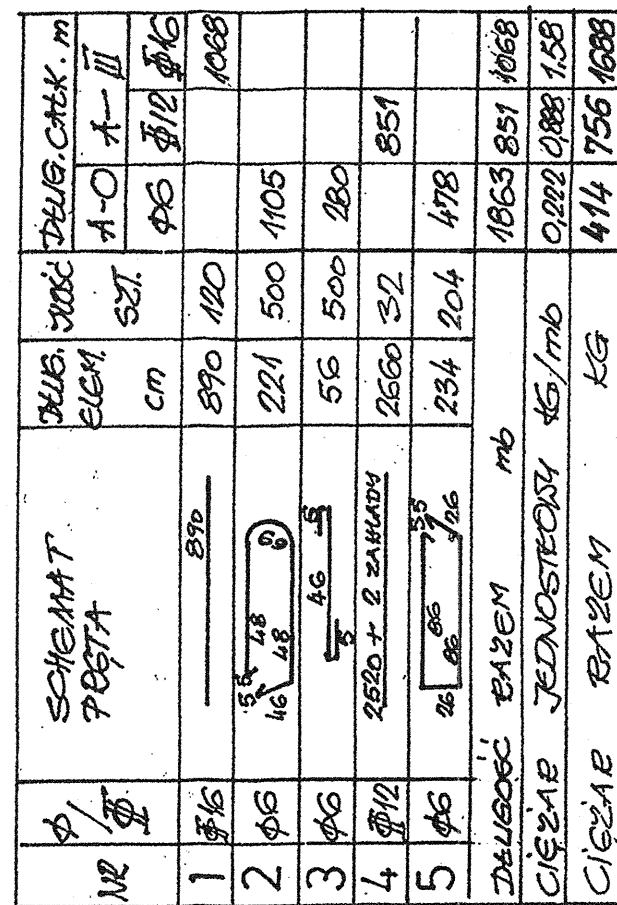 NR ϕ/# SCHEMAT PRĘTA DŁUG. ELEM. cm ILOŚĆ SZT. DŁUG. CAŁK. m
A-O A-III
ϕ6 #12 #16
1 #16 890 890 120 1068
2 ϕ6 5 5 46 48 48 221 500 1105
3 ϕ6 5 46 5 56 500 280
4 #12 2520 + 2 ZAKŁADY 2660 32 851
5 ϕ6 26 86 86 5 5 26 234 204 478
DŁUGOŚĆ RAZEM mb 1863 851 1068
CIĘŻAR JEDNOSTKOWY KG/mb 0,222 0,888 1.58
CIĘŻAR RAZEM KG 414 756 1688